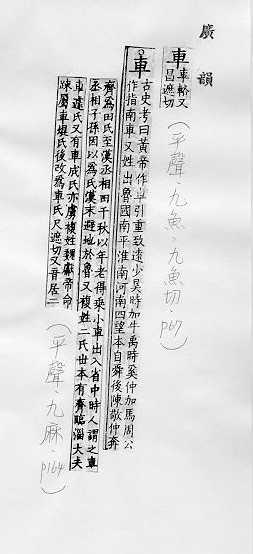 廣韻
車 車輅又
昌遮切
(平聲、九魚、九魚切、p67)
車 古史考曰黃帝作車引重致遠少昊時加牛禹時奚仲加馬周公
作指南車又姓出魯國南平淮南河南四望本自舜後陳敬仲奔
齊為田氏至漢丞相田千秋以年老得乘小車出入省中時人謂之車
丞相子孫因以為氏漢末避地於魯又複姓二氏世本有齊臨淄大夫
車遽氏又有車成氏亦虜複姓魏獻帝命
疎屬車焜氏後改為車氏尺遮切又音居二
(平聲、九麻、p164)